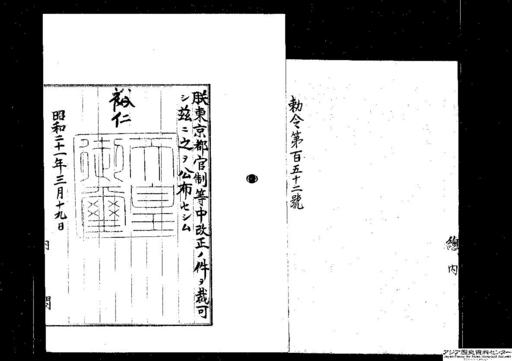 勅令第百五十二號
朕東京都官制等中改正ノ件ヲ裁可
シ茲ニ之ヲ公布セシム
裕仁
天皇
御璽
昭和二十一年三月十九日
内閣
總内
アジア歴史資料センター